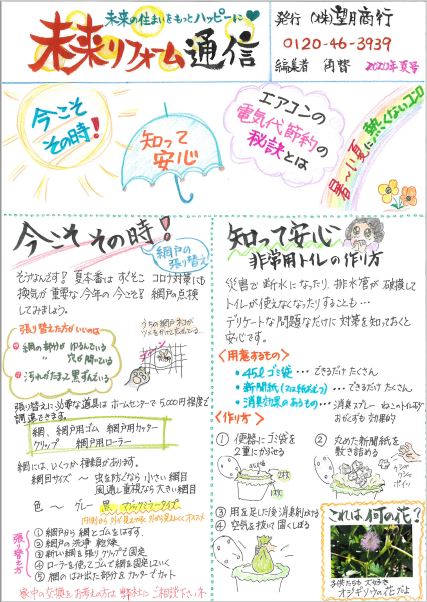 未来の住まいをもっとハッピーに
未来リフォーム通信
発行 (株)望月商行
0120-46-3939
編集者
2020年夏号
今こそ
その時!
知って
安心
エアコンの
電気代節約の
秘訣とは
暑〜い夏に熱くないココロ
今こそ その時!
網戸の
張り替え
そうなんです? 夏本番は すぐそこ コロナ対策にも
換気が重要な今年の今こそ? 網戸の点検
してみましょう。
張り替えた方がいいのは
網の部分が ゆるんでいる
〃 穴が開いている
汚れがたまって黒ずんでいる
うちの網戸ネコが
ツメをかけて
張り替えに必要な道具は ホームセンターで 5,000円程度で
調達できます。
網、網戸用ゴム 網戸用カッター
クリップ 網戸用ローラー
網には、いくつか種類があります。
網目サイズ 〜 虫を防ぐなら 小さい網目
風通し重視なら 大きい網目
色 〜 グレー 黒
張り替え方
① 網戸から網とゴムをはずす
② 網戸の洗浄 乾燥
③ 新しい網を張りクリップで固定
④ ローラーを使ってゴムで網を固定していく
⑤ 網のはみ出た部分をカッターでカット
家中の交換をお考えの方は 弊社に ご相談下さい
知って安心
非常用トイレの作り方
災害で断水になったり、排水管が破損して
トイレが使えなくなったりすることも…
デリケートな問題なだけに 対策を知っておくと
安心です。
<用意するもの>
・45ℓゴミ袋 … できるだけ たくさん
・新聞紙 … できるだけ たくさん
・消臭効果のあるもの … 消臭スプレー ねこのトイレ砂
おがくずも効果的
<作り方>
① 便器にゴミ袋を
2重にかぶせる
② 丸めた新聞紙を
敷き詰める
③ 用を足した後 消臭剤かける
④ 空気を抜いて固くしばる
これは何の花?
子供たちも大好き
オジギソウの花だよ